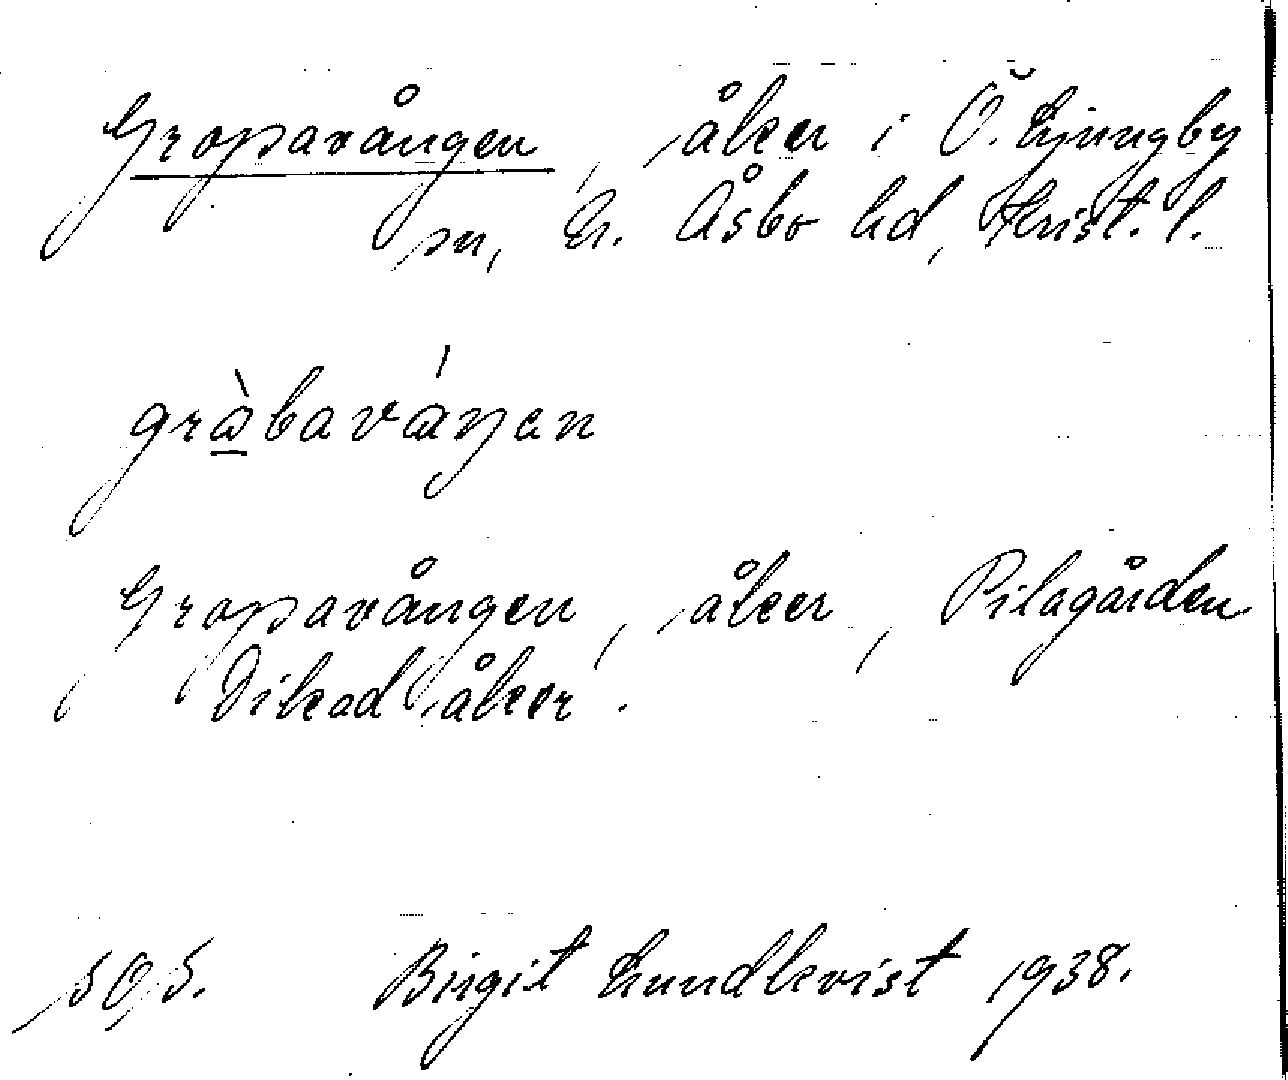 Gropavången, åker i Ö. Ljungby
sn, N. Åsbo hd, Krist. l.
gràbaváŋen
Gropavången, åker, Pilagården
Dikad åker.
Birgit Lundkvist 1938.